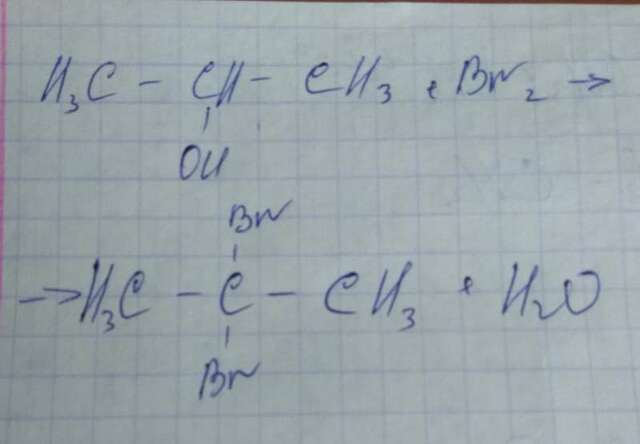 H₃C - CH - CH₃ + Br₂ →
OH
Br
→ H₃C - C - CH₃ + H₂O
Br